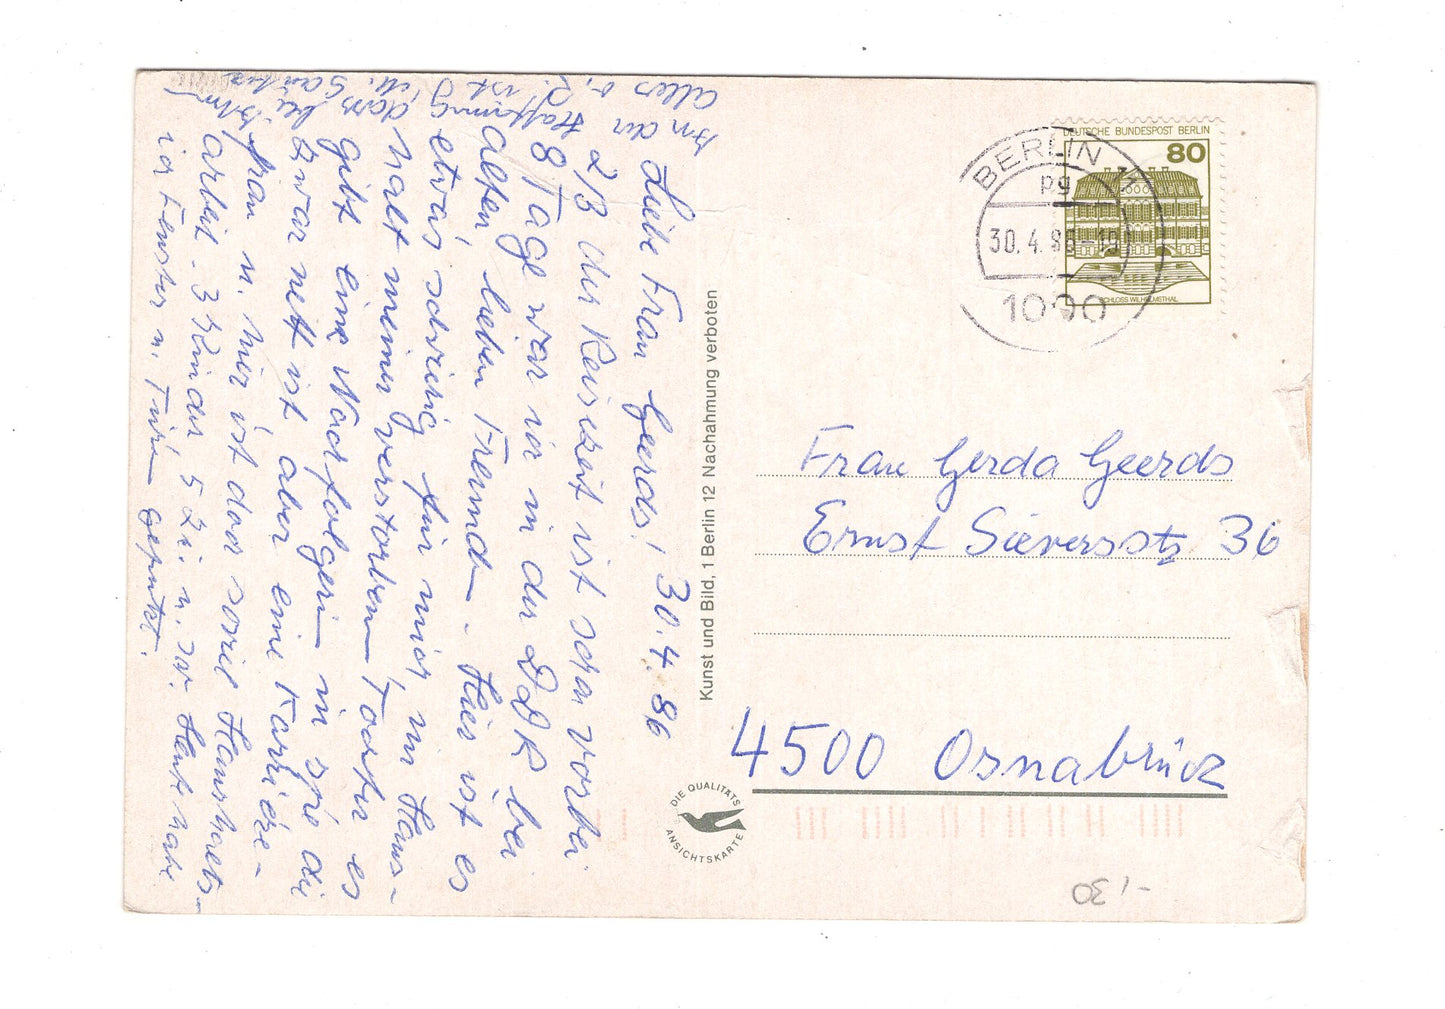 Liebe Frau Geerds! 30.4.86
2/3 der Reisezeit ist schon vorbei
8 Tage war ich in der DDR bei
alten, lieben Freunden. Hier ist es
etwas schwierig für mich, im Haus-
halt meiner verstorbenen Tochter es
gibt eine Nachfolgerin in spé die
zwar nett ist aber eine Karriere-
frau u. hier ist doch soviel Haushalts-
arbeit. 3 Kinder 5 Zi. u. so. Heute habe
ich Fenster u. Türen geputzt.
In der Hoffnung dass bei Ihnen
alles o.
ist
Kunst und Bild, 1 Berlin 12 Nachahmung verboten
DIE QUALITÄTS
ANSICHTSKARTE
DEUTSCHE BUNDESPOST BERLIN
80
SCHLOSS WILHELMSTHAL
BERLIN
pg
30.4.86-19
1000
Frau Gerda Geerds
Ernst Sieversstr 36
4500 Osnabrück
-,30